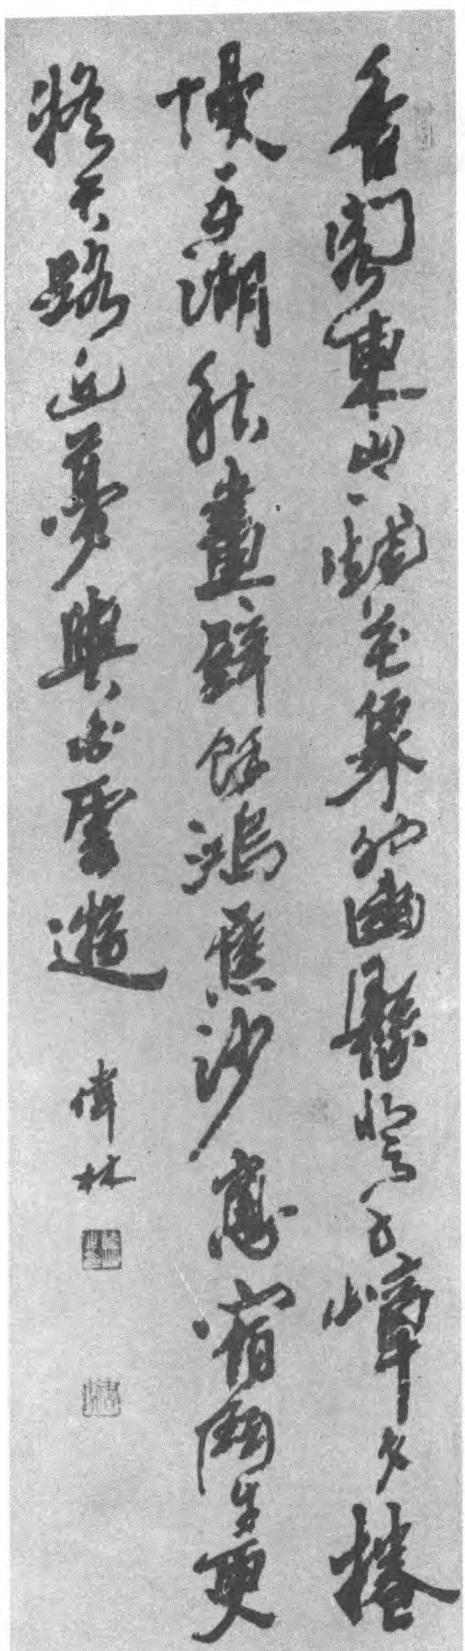 香閣東山下煙花象外幽懸燈千嶂夕捲
幔五湖秋畫壁餘鴻雁沙窓宿鬪牛更
疑天路近夢與白雲遊
偉林